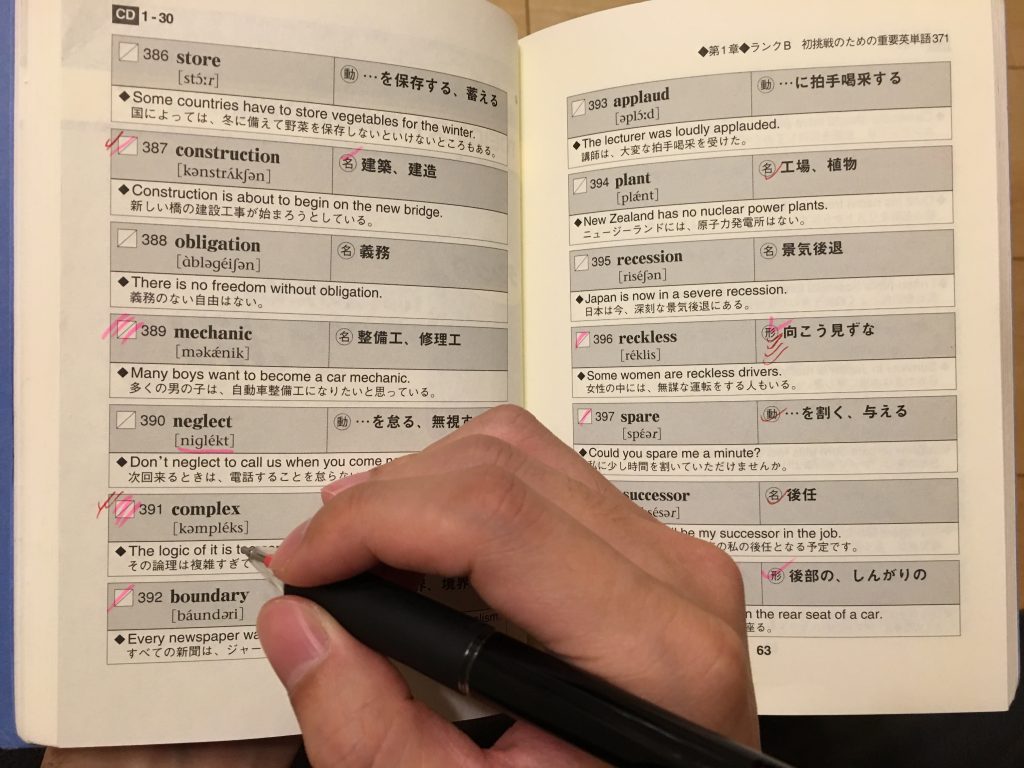 CD 1-30
386 store
[stɔ́ːr]
動 …を保存する、蓄える
◆Some countries have to store vegetables for the winter.
国によっては、冬に備えて野菜を保存しないといけないところもある。
387 construction
[kənstrʌ́kʃən]
名 建築、建造
◆Construction is about to begin on the new bridge.
新しい橋の建設工事が始まろうとしている。
388 obligation
[àbləgéiʃən]
名 義務
◆There is no freedom without obligation.
義務のない自由はない。
389 mechanic
[məkǽnik]
名 整備工、修理工
◆Many boys want to become a car mechanic.
多くの男の子は、自動車整備工になりたいと思っている。
390 neglect
[niglékt]
動 …を怠る、無視
◆Don't neglect to call us when you come
次回来るときは、電話することを怠らな
391 complex
[kəmpléks]
◆The logic of it is
その論理は複雑すぎて
392 boundary
[báundəri]
境界
◆Every newspaper
すべての新聞は、ジャー
◆第1章◆ランクB 初挑戦のための重要英単語371
393 applaud
[əplɔ́ːd]
動 …に拍手喝采する
◆The lecturer was loudly applauded.
講師は、大変な拍手喝采を受けた。
394 plant
[plǽnt]
名 工場、植物
◆New Zealand has no nuclear power plants.
ニュージーランドには、原子力発電所はない。
395 recession
[riséʃən]
名 景気後退
◆Japan is now in a severe recession.
日本は今、深刻な景気後退にある。
396 reckless
[réklis]
形 向こう見ずな
◆Some women are reckless drivers.
女性の中には、無謀な運転をする人もいる。
397 spare
[spɛ́ər]
動 …を割く、与える
◆Could you spare me a minute?
私に少し時間を割いていただけませんか。
successor
sésər]
名 後任
be my successor in the job.
の私の後任となる予定です。
形 後部の、しんがりの
in the rear seat of a car.
座る。
63